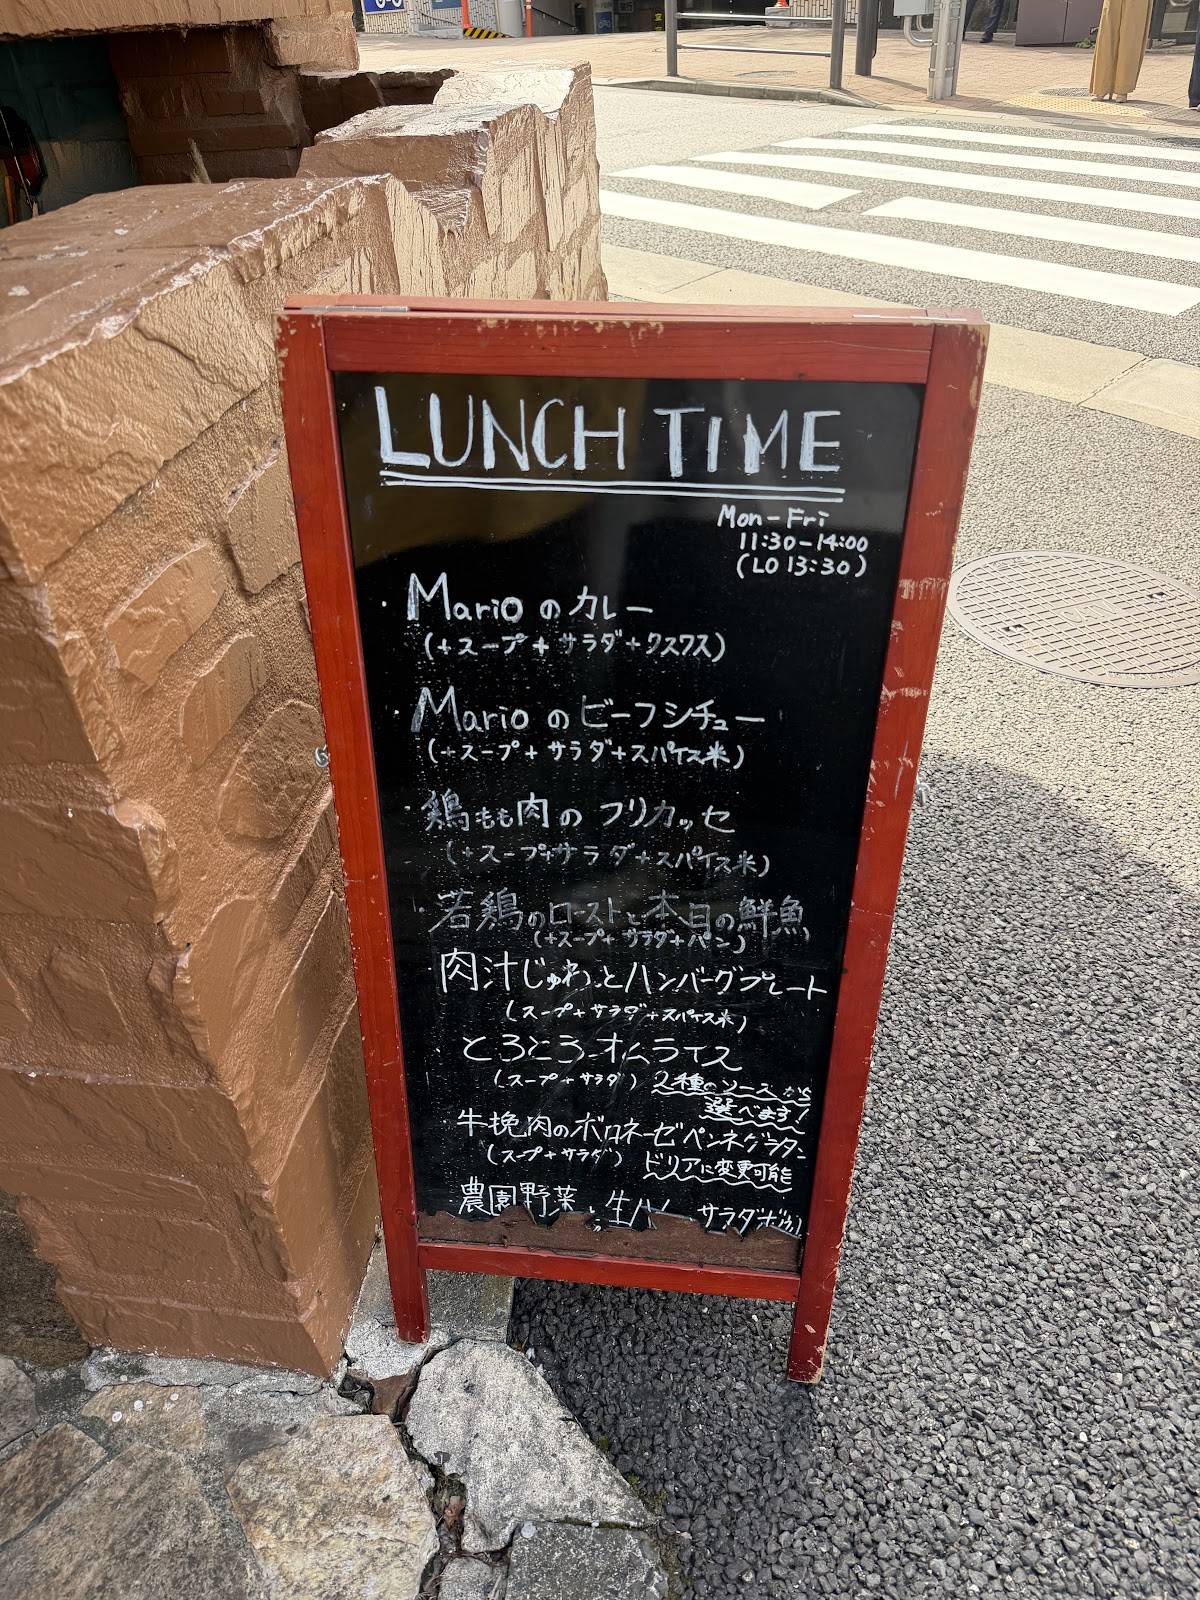 LUNCH TIME
Mon-Fri
11:30-14:00
(LO 13:30)
・Marioのカレー
(+スープ+サラダ+クスクス)
・Marioのビーフシチュー
(+スープ+サラダ+スパイス米)
・鶏もも肉のフリカッセ
(+スープ+サラダ+スパイス米)
・若鶏のローストと本日の鮮魚
(+スープ+サラダ+パン)
肉汁じゅわっとハンバーグプレート
(スープ+サラダ+スパイス米)
とろとろオムライス
(スープ+サラダ) 2種のソースから
選べます!
牛挽肉のボロネーゼペンネグラタン
(スープ+サラダ) ドリアに変更可能
農園野菜と生ハムのサラダボウル